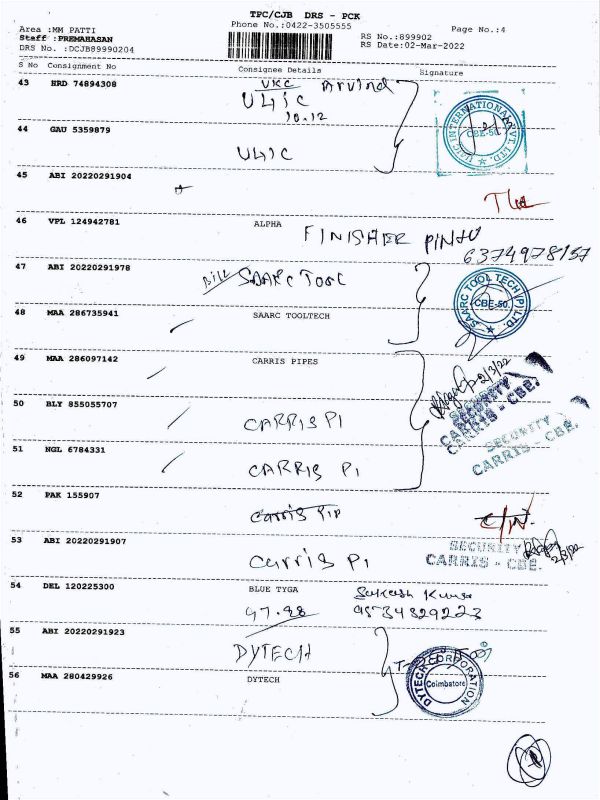 TPC/CJB DRS - PCK
Area :MM PATTI Phone No.:0422-3505555 Page No.:4
Staff :PREMAHASAN RS No.:899902
DRS No. :DCJB89990204 RS Date:02-Mar-2022
S No Consignment No Consignee Details Signature
43 HRD 74894308 UKC Arvind
UHIC
10.12
44 GAU 5359879
UHIC
45 ABI 20220291904
46 VPL 124942781 ALPHA
FINISHER PINTU
6374978157
47 ABI 20220291978 Bill SAARC TOOL
SAARC TOOL TECH (P) LTD. CBE-50.
48 MAA 286735941 SAARC TOOLTECH
49 MAA 286097142 CARRIS PIPES
2/3/22
SECURITY
CARRIS - CBE.
50 BLY 855055707
CARRIS PI
SECURITY
CARRIS - CBE.
51 NGL 6784331
CARRIS PI
52 PAK 155907
Carris Pip C/N.
53 ABI 20220291907
Carris Pi
SECURITY 2/3/22
CARRIS - CBE.
54 DEL 120225300 BLUE TYGA
47.88
55 ABI 20220291923
DYTECH
DYTECH CORPORATION Coimbatore
56 MAA 280429926 DYTECH